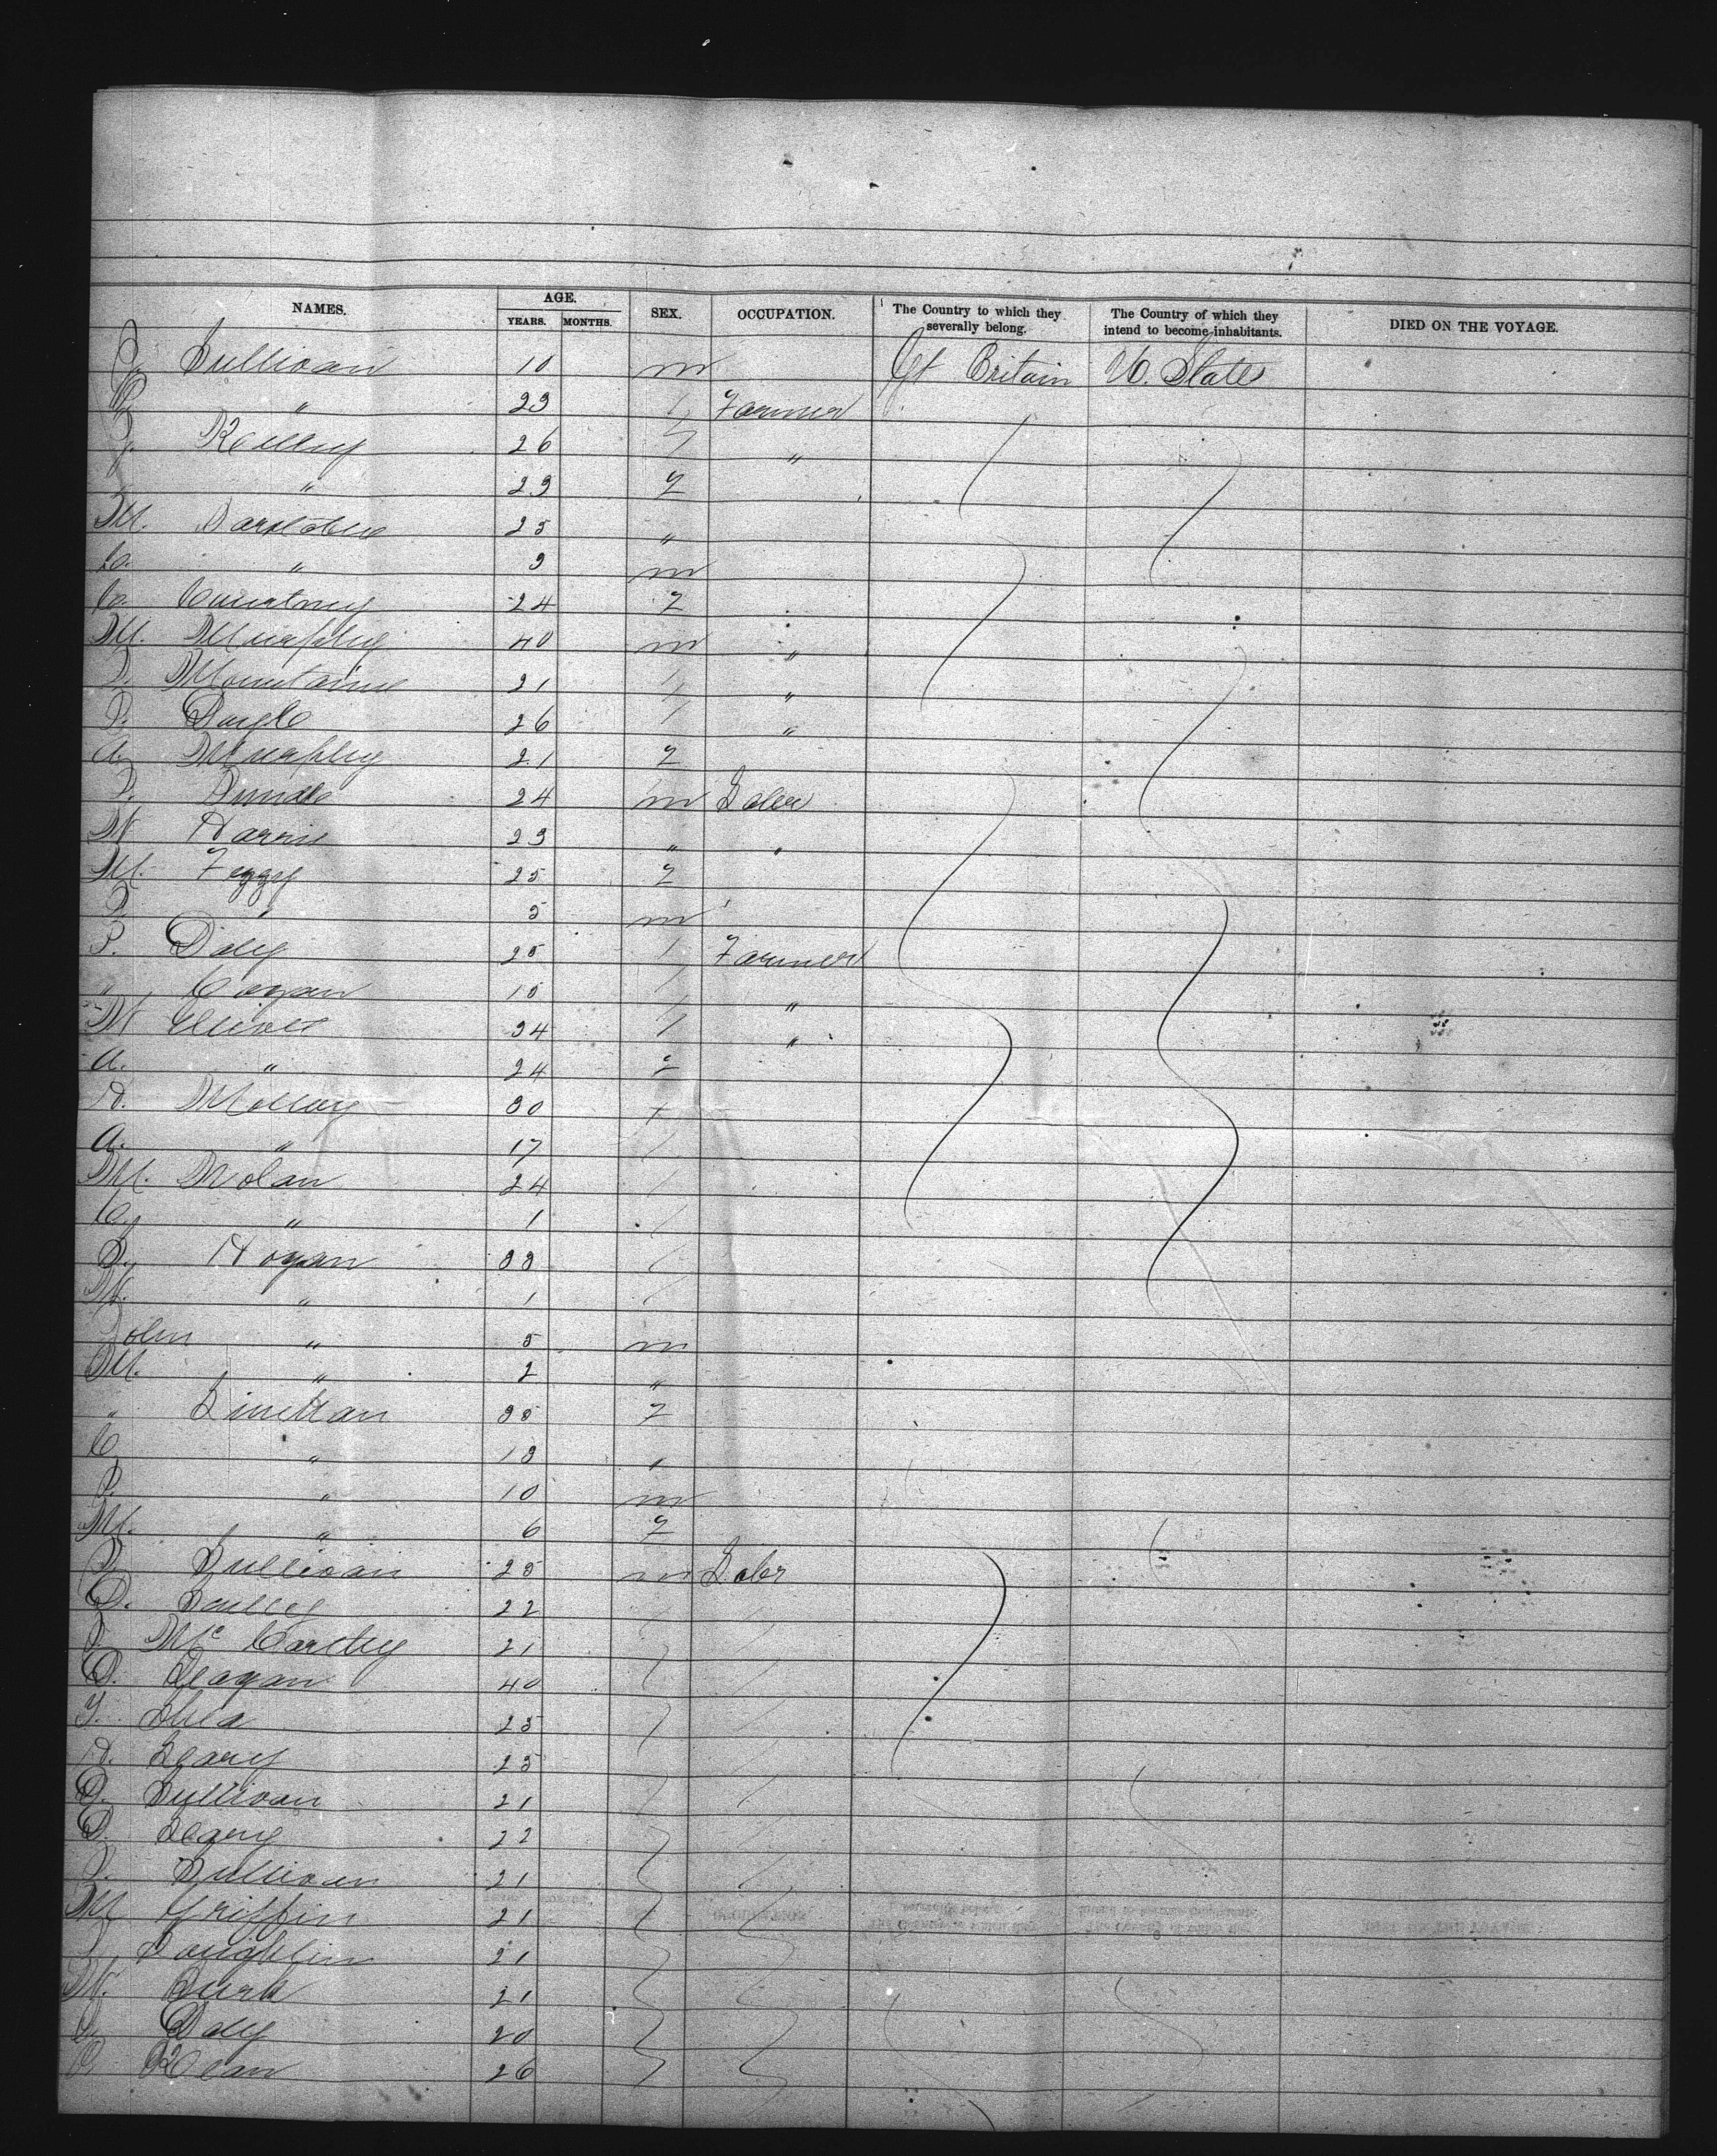 NAMES. AGE. SEX. OCCUPATION. The Country to which they severally belong. The Country of which they intend to become inhabitants. DIED ON THE VOYAGE.
YEARS. MONTHS.
Sullivan 10 m Gt Britain U. States
" 23 Farmer
26 "
" 23 f
M. 25 "
" 9 m
C. Courtney 24 f
M. Murphy 40 m "
Mountaine 21 "
Doyle 26 "
A. Murphy 21 f
24 m Labr
Harris 23 " "
M. Feggy 25 f
" 5 m
P. Daly 25 Farmer
" Cogan 15 "
34 "
A. " 24 f
H. Molloy 30
A. " 17
M. Nolan 24
C. " 1
Hogan 33
" 1
John " 5 m
M. " 2 "
" Linehan 35 f
C. " 13 "
P. " 10 m
M. " 6 f
Sullivan 25 m Labr
D. 22
Mc Carthy 21
D. Reagan 40
Shea 25
H. Leary 25
D. Sullivan 21
D. Leary 22
Sullivan 21
M Griffin 21
Coughlin 21
Burk 21
Daly 20
Kean 26